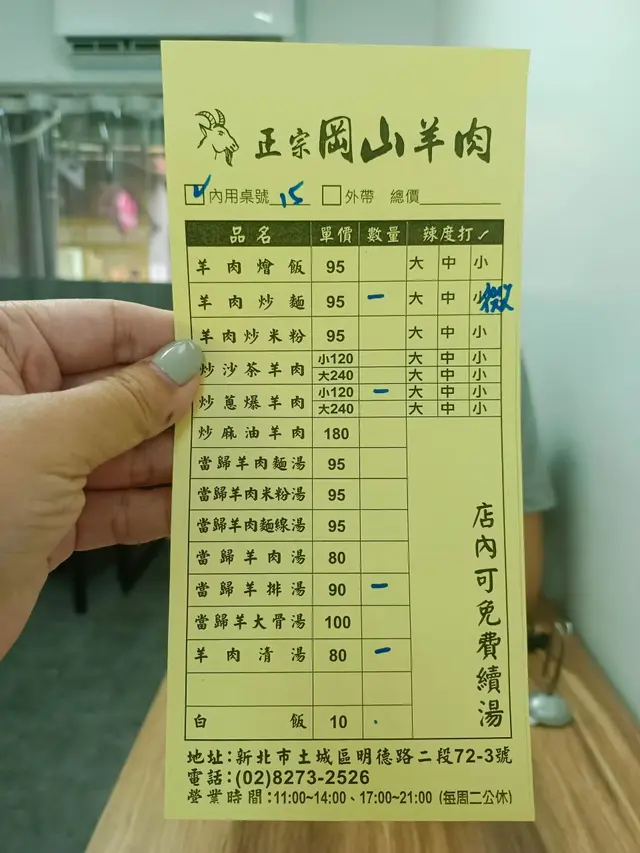 正宗岡山羊肉
✓內用桌號 15 □外帶 總價
品名 單價 數量 辣度打✓
羊肉燴飯 95 大 中 小
羊肉炒麵 95 一 大 中 小 微
羊肉炒米粉 95 大 中 小
炒沙茶羊肉 小120 大 中 小
大240 大 中 小
炒蔥爆羊肉 小120 一 大 中 小
大240 大 中 小
炒麻油羊肉 180
當歸羊肉麵湯 95
當歸羊肉米粉湯 95
當歸羊肉麵線湯 95
當歸羊肉湯 80
當歸羊排湯 90 一
當歸羊大骨湯 100
羊肉清湯 80 一
白飯 10
店內可免費續湯
地址:新北市土城區明德路二段72-3號
電話:(02)8273-2526
營業時間:11:00~14:00、17:00~21:00 (每周二公休)